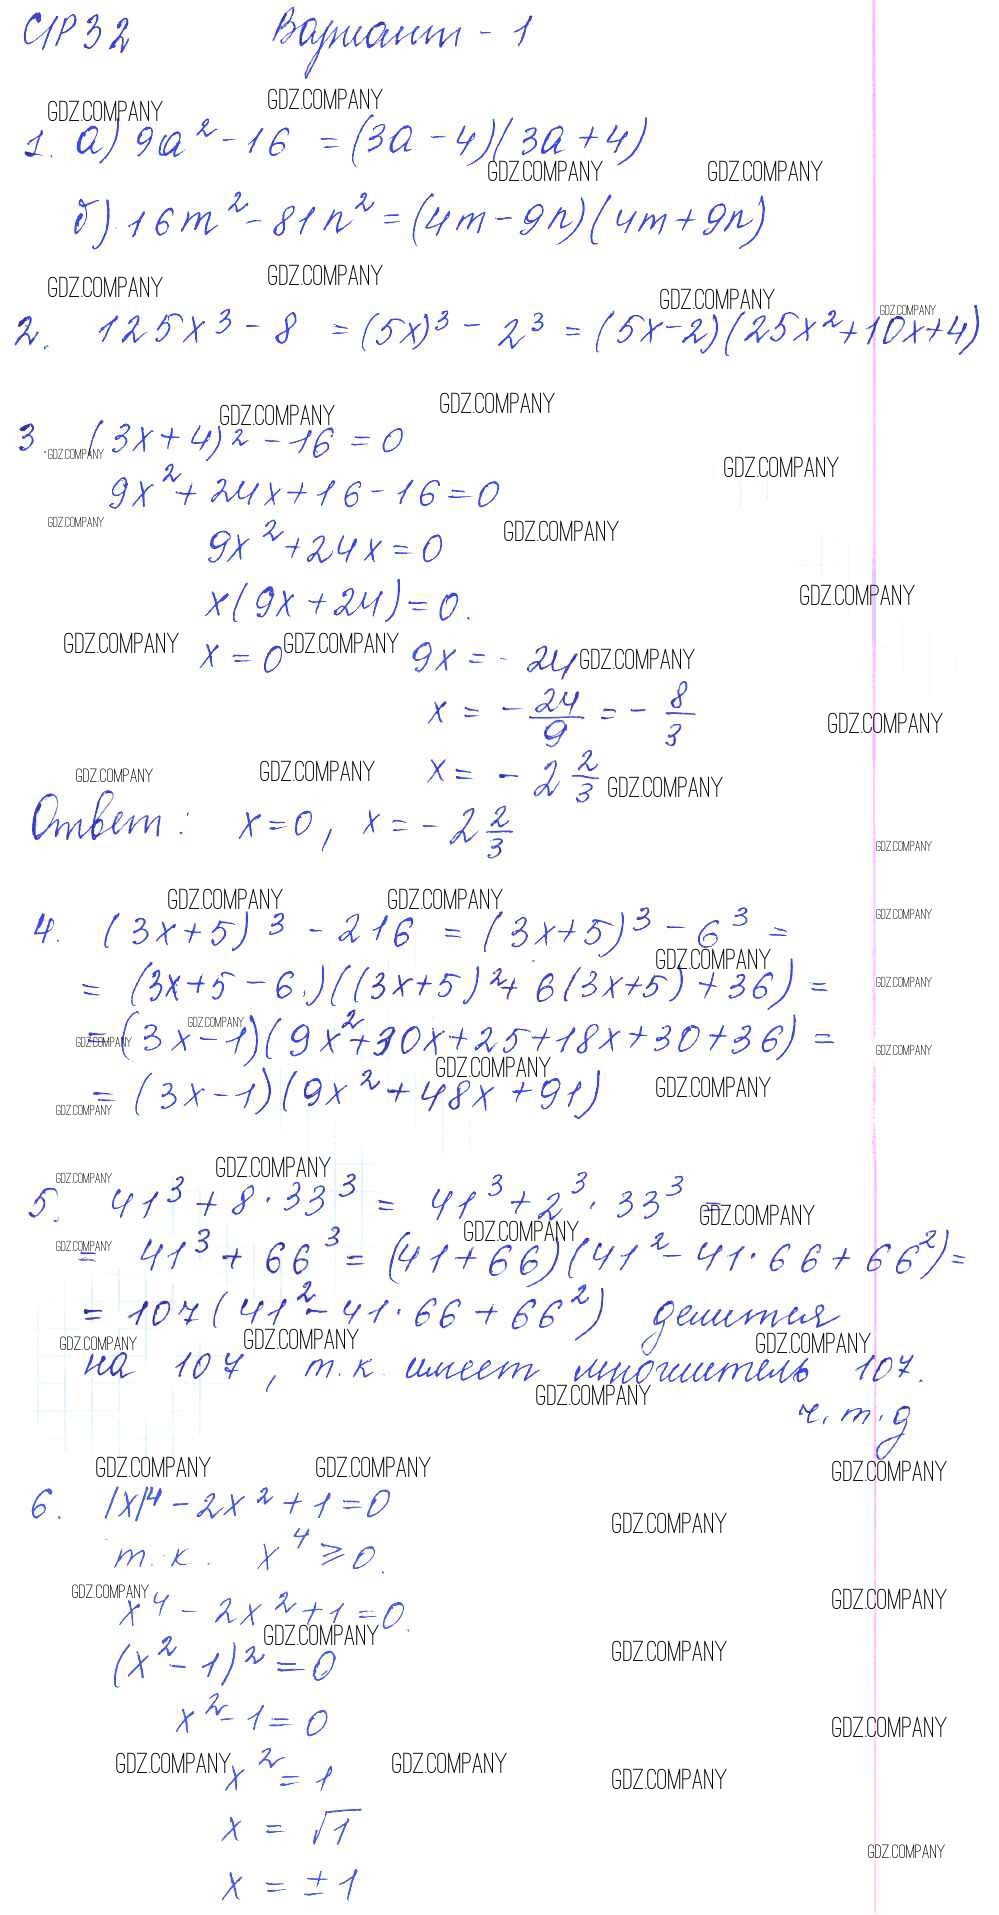 С/Р 32 Вариант - 1
GDZ.COMPANY GDZ.COMPANY
1. а) 9a² - 16 = (3a - 4)(3a + 4)
GDZ.COMPANY GDZ.COMPANY
б) 16m² - 81n² = (4m - 9n)(4m + 9n)
GDZ.COMPANY GDZ.COMPANY GDZ.COMPANY GDZ.COMPANY
2. 125x³ - 8 = (5x)³ - 2³ = (5x - 2)(25x² + 10x + 4)
GDZ.COMPANY GDZ.COMPANY
3. (3x + 4)² - 16 = 0
GDZ.COMPANY GDZ.COMPANY
9x² + 24x + 16 - 16 = 0
GDZ.COMPANY GDZ.COMPANY
9x² + 24x = 0
GDZ.COMPANY
x(9x + 24) = 0.
GDZ.COMPANY GDZ.COMPANY GDZ.COMPANY
x = 0 9x = - 24
x = - 24/9 = - 8/3
GDZ.COMPANY
x = - 2 2/3
GDZ.COMPANY GDZ.COMPANY GDZ.COMPANY
Ответ: x = 0, x = - 2 2/3
GDZ.COMPANY
GDZ.COMPANY GDZ.COMPANY GDZ.COMPANY
4. (3x + 5)³ - 216 = (3x + 5)³ - 6³ =
GDZ.COMPANY GDZ.COMPANY
= (3x + 5 - 6)((3x + 5)² + 6(3x + 5) + 36) =
GDZ.COMPANY GDZ.COMPANY GDZ.COMPANY
= (3x - 1)(9x² + 30x + 25 + 18x + 30 + 36) =
GDZ.COMPANY GDZ.COMPANY GDZ.COMPANY
= (3x - 1)(9x² + 48x + 91)
GDZ.COMPANY GDZ.COMPANY
5. 41³ + 8 · 33³ = 41³ + 2³ · 33³ =
GDZ.COMPANY GDZ.COMPANY GDZ.COMPANY
= 41³ + 66³ = (41 + 66)(41² - 41 · 66 + 66²) =
= 107(41² - 41 · 66 + 66²) делится
GDZ.COMPANY GDZ.COMPANY GDZ.COMPANY
на 107, т.к. имеет множитель 107.
GDZ.COMPANY
ч.т.д
GDZ.COMPANY GDZ.COMPANY GDZ.COMPANY
6. |x|⁴ - 2x² + 1 = 0
GDZ.COMPANY
т.к. x⁴ ⩾ 0.
GDZ.COMPANY GDZ.COMPANY
x⁴ - 2x² + 1 = 0.
GDZ.COMPANY GDZ.COMPANY
(x² - 1)² = 0
x² - 1 = 0
GDZ.COMPANY
GDZ.COMPANY GDZ.COMPANY GDZ.COMPANY
x² = 1
x = √1
GDZ.COMPANY
x = ± 1